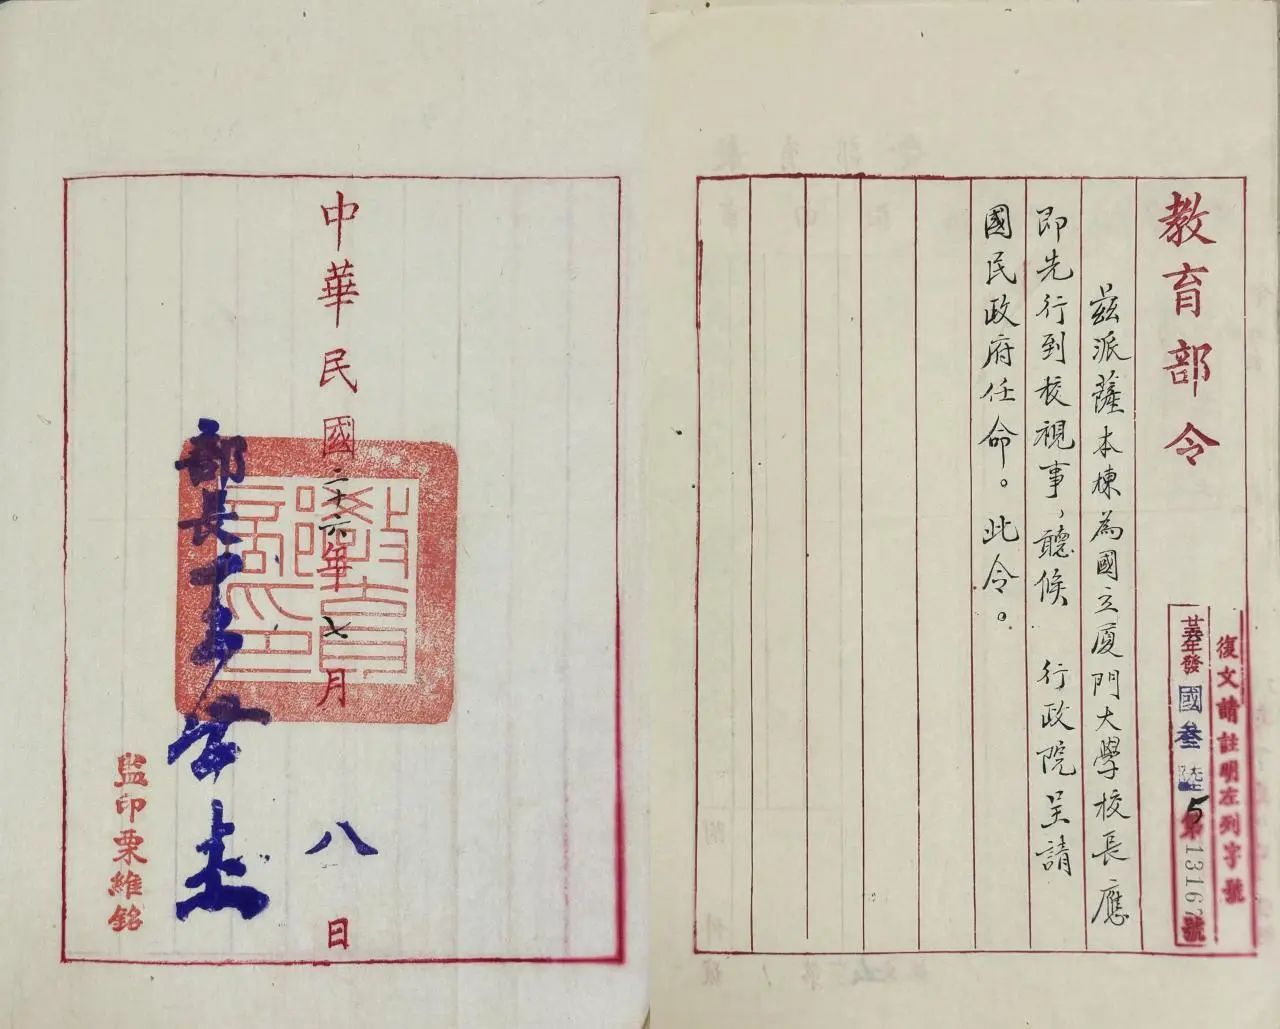 教育部令
復文請註明左列字號
廿五年發國叁陸5第13167號
茲派薩本棟為國立厦門大學校長應
即先行到校視事，聽候 行政院呈請
國民政府任命。此令。
中華民國二十六年七月八日
教育部印
部長王世杰
監印栗維銘